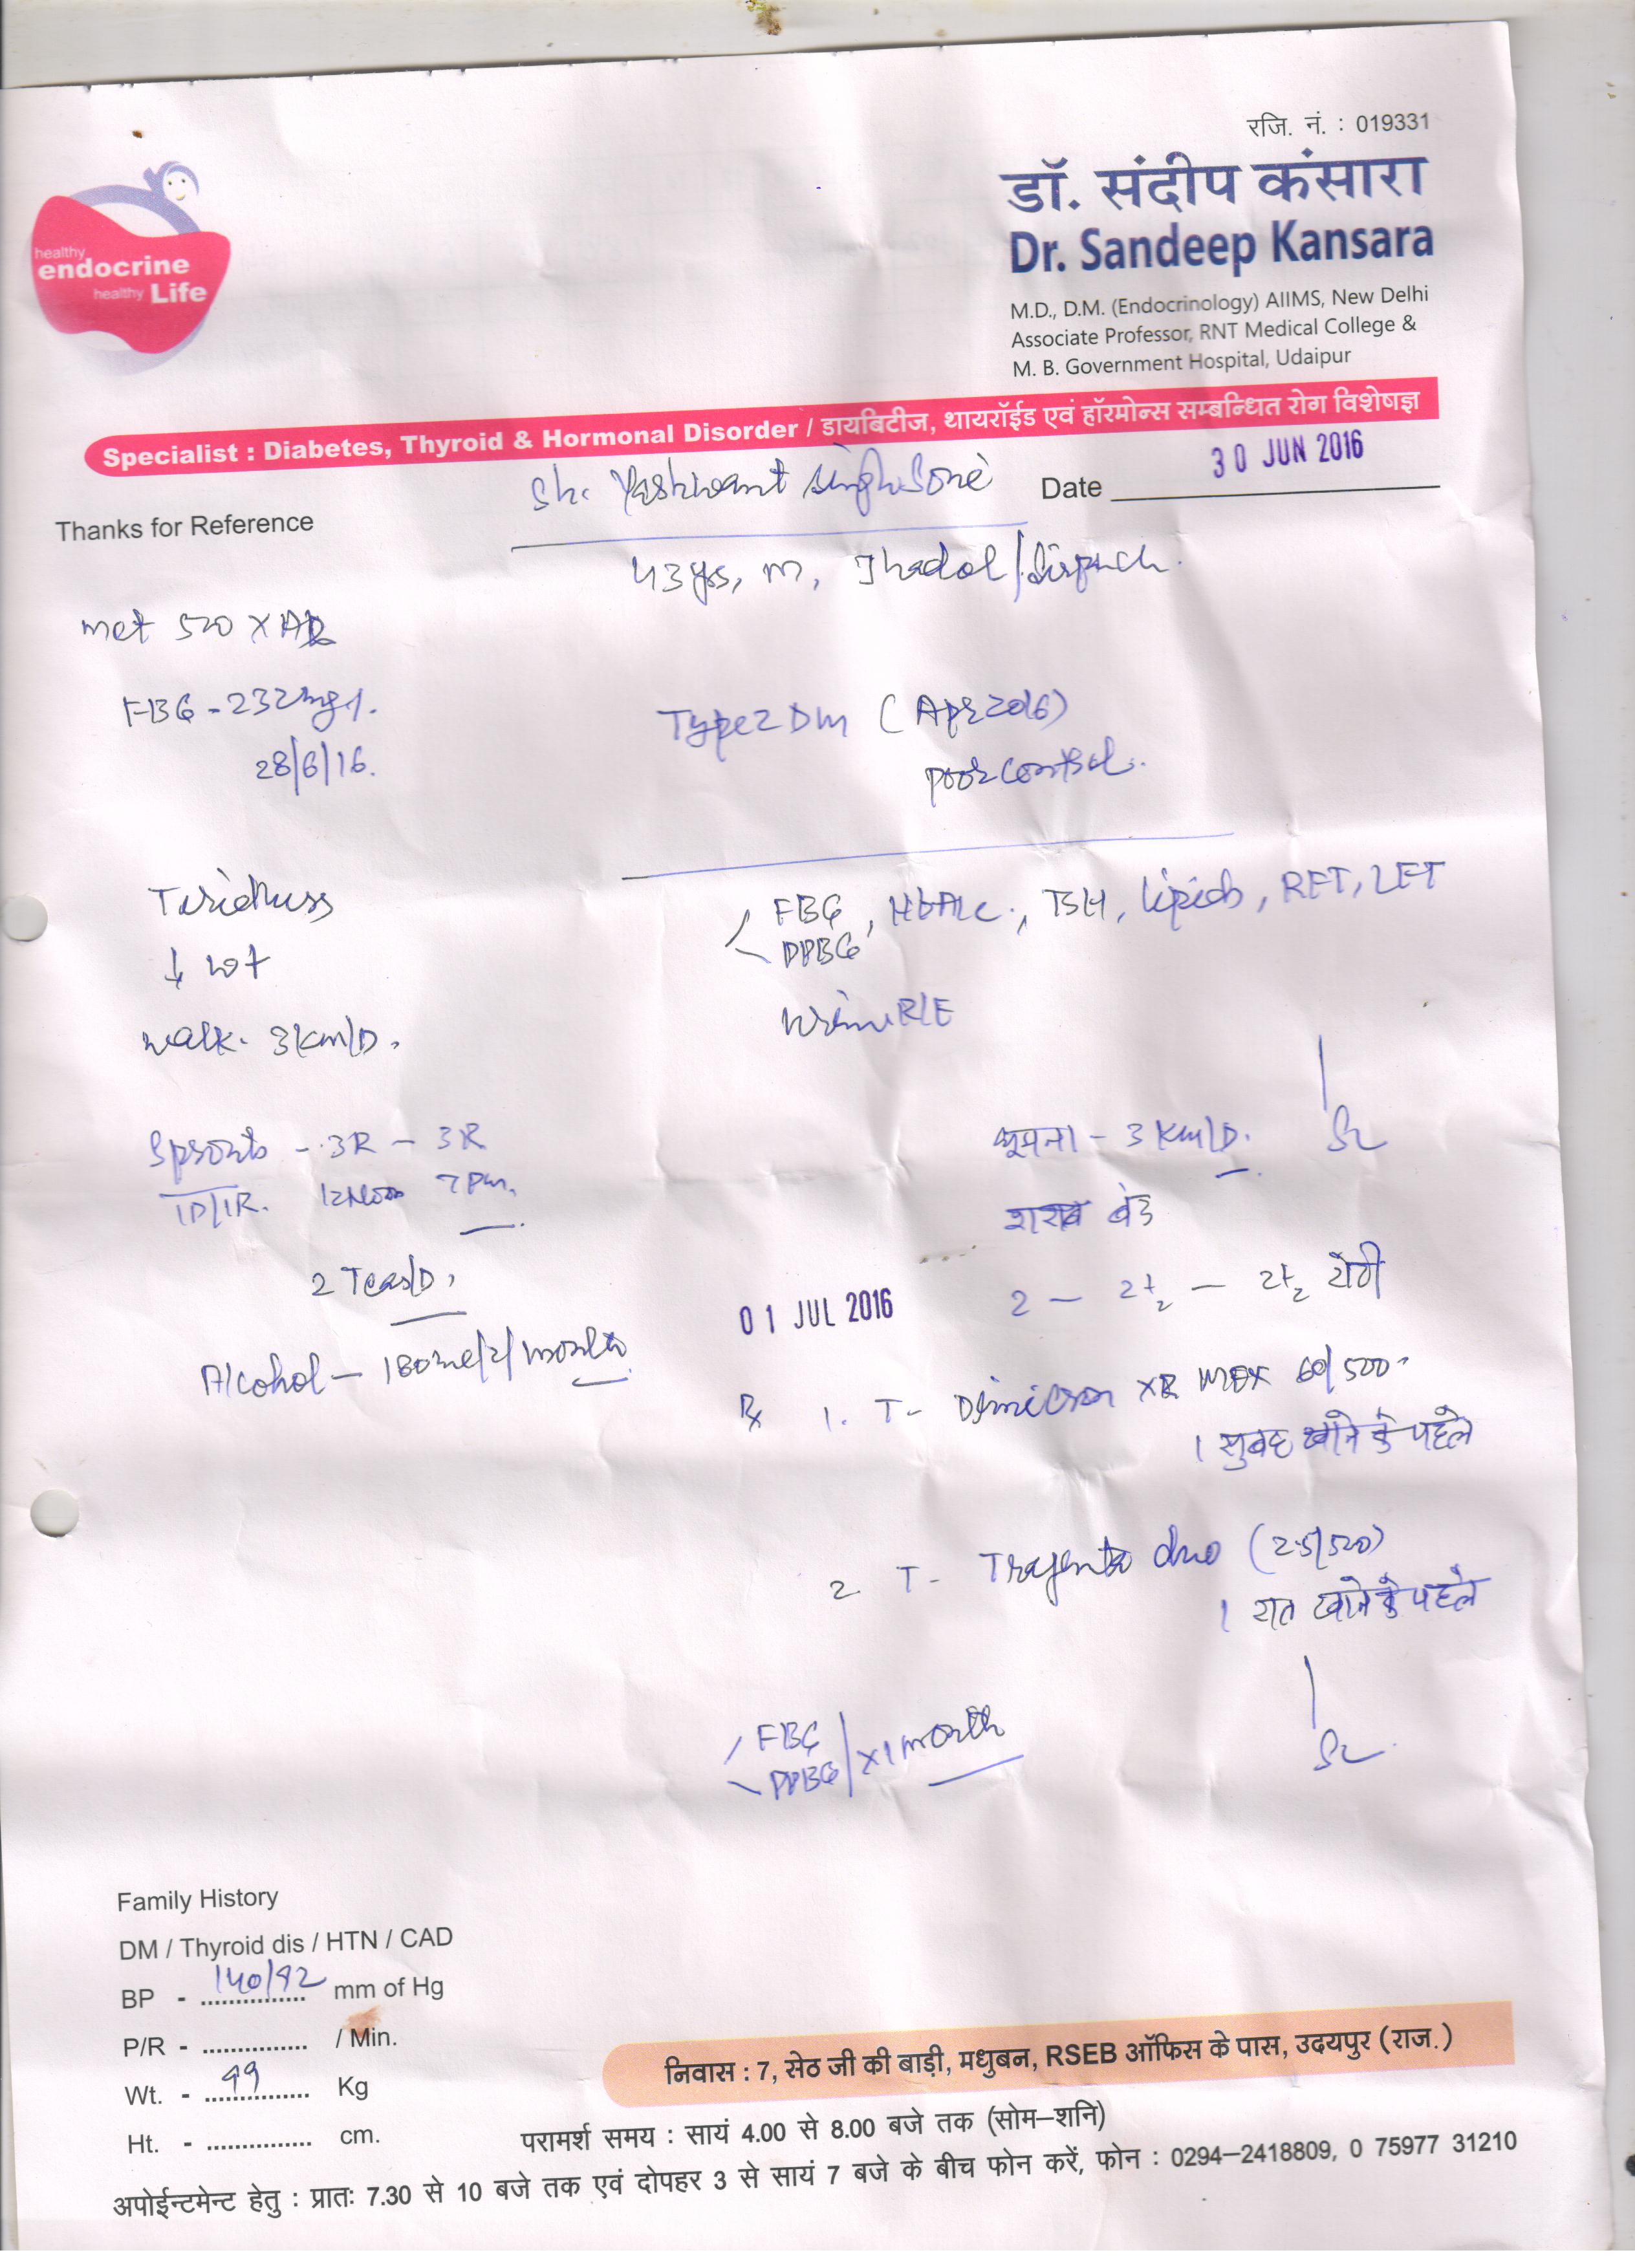 रजि. नं. : 019331
डॉ. संदीप कंसारा
Dr. Sandeep Kansara
healthy
endocrine
healthy Life
M.D., D.M. (Endocrinology) AIIMS, New Delhi
Associate Professor, RNT Medical College &
M. B. Government Hospital, Udaipur
Specialist : Diabetes, Thyroid & Hormonal Disorder / डायबिटीज, थायरॉईड एवं हॉरमोन्स सम्बन्धित रोग विशेषज्ञ
30 JUN 2016
Sh. Yashwant Singh Soni Date
Thanks for Reference
43 yrs, m, Jhadol /
met 500 X
FBG - 232mg%.
28/6/16.
Type 2 Dm (Apr 2016)
poor control.
Tiredness
↓ wt
walk. 3 Km/D.
FBG, HbA1c, TSH, Lipids, RFT, LFT
PPBG
Urine R/E
Sprouts - 3R - 3R
1D/1R. 12 Noon 7 pm.
2 Teas/D.
Alcohol - 180ml/2/month
घूमना - 3 Km/D.
शराब बंद
2 - 2½ - 2½ रोटी
01 JUL 2016
Rx 1. T- Diamicron XR MEX 60/500
1 सुबह खाने के पहले
2. T- Trajenta duo (2.5/500)
1 रात खाने के पहले
FBG
PPBG / x 1 month
Family History
DM / Thyroid dis / HTN / CAD
BP - 140/92 mm of Hg
P/R - ............... / Min.
Wt. - 99 Kg
Ht. - ............... cm.
निवास : 7, सेठ जी की बाड़ी, मधुबन, RSEB ऑफिस के पास, उदयपुर (राज.)
परामर्श समय : सायं 4.00 से 8.00 बजे तक (सोम–शनि)
अपोईन्टमेन्ट हेतु : प्रातः 7.30 से 10 बजे तक एवं दोपहर 3 से सायं 7 बजे के बीच फोन करें, फोन : 0294–2418809, 0 75977 31210